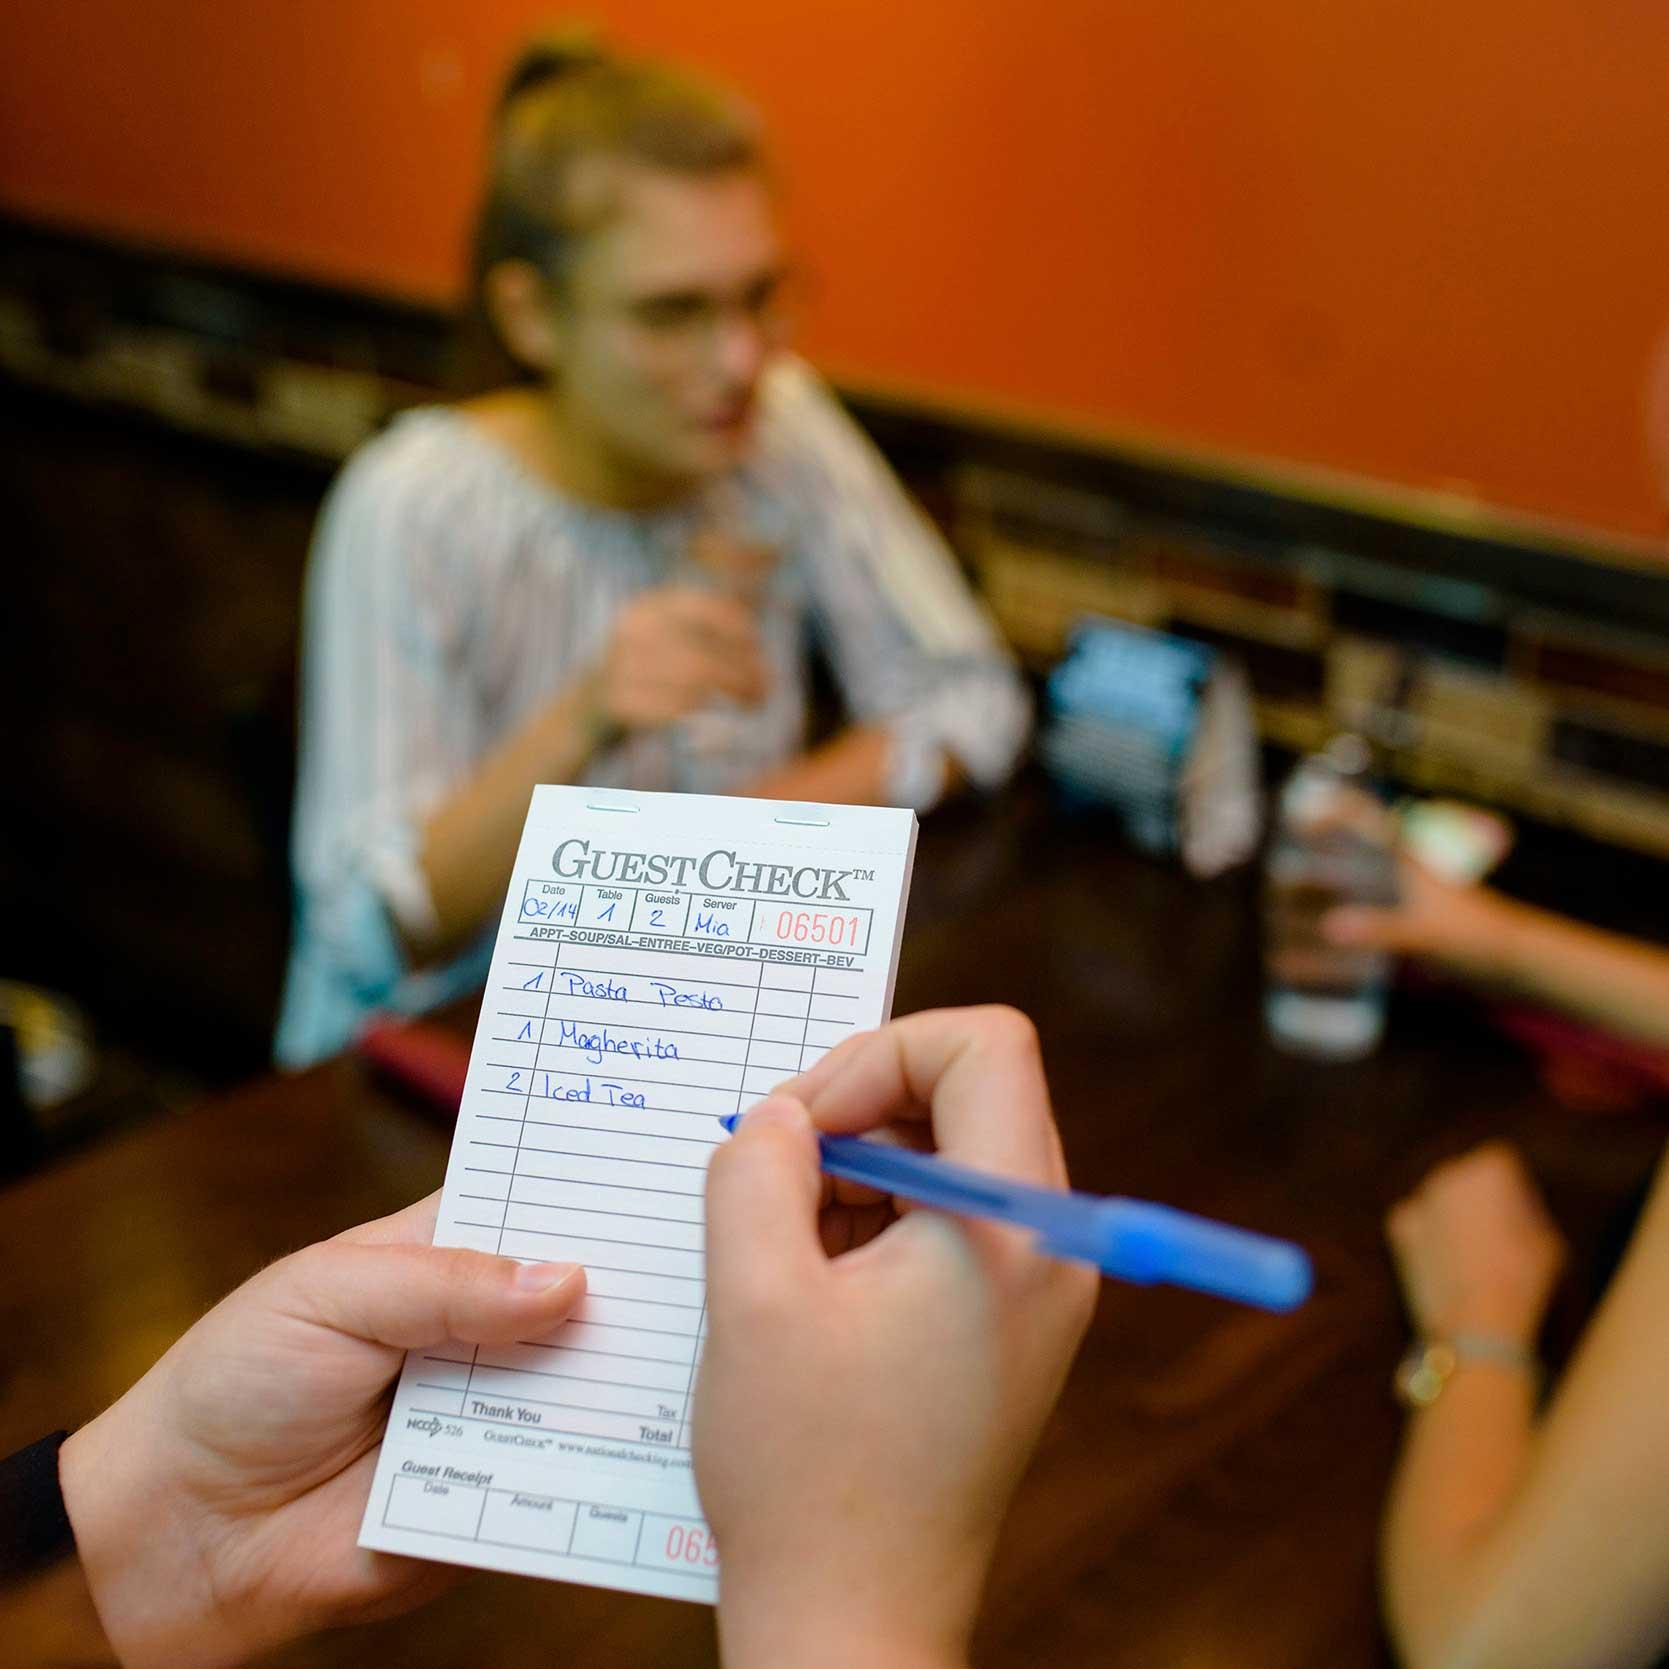 GUESTCHECK™
Date Table Guests Server
02/14 1 2 Mia 06501
APPT–SOUP/SAL–ENTREE–VEG/POT–DESSERT–BEV
1 Pasta Pesto
1 Magherita
2 Iced Tea
Thank You Tax
Total
NCCO 526 GUESTCHECK™ www.nationalchecking.com
Guest Receipt
Date Amount Guests
065